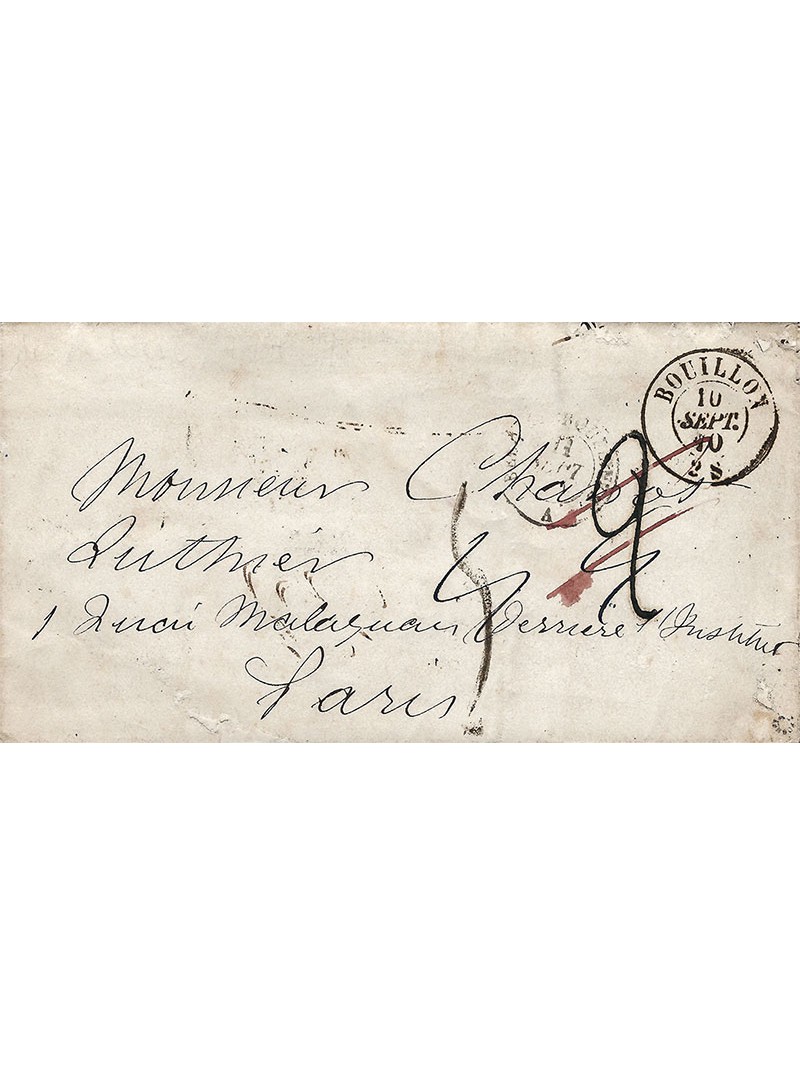 BOUILLON
10
SEPT.
70
2 S
Monsieur
Luthier
1 Quai Malaquais Derrière l'Institut
Paris